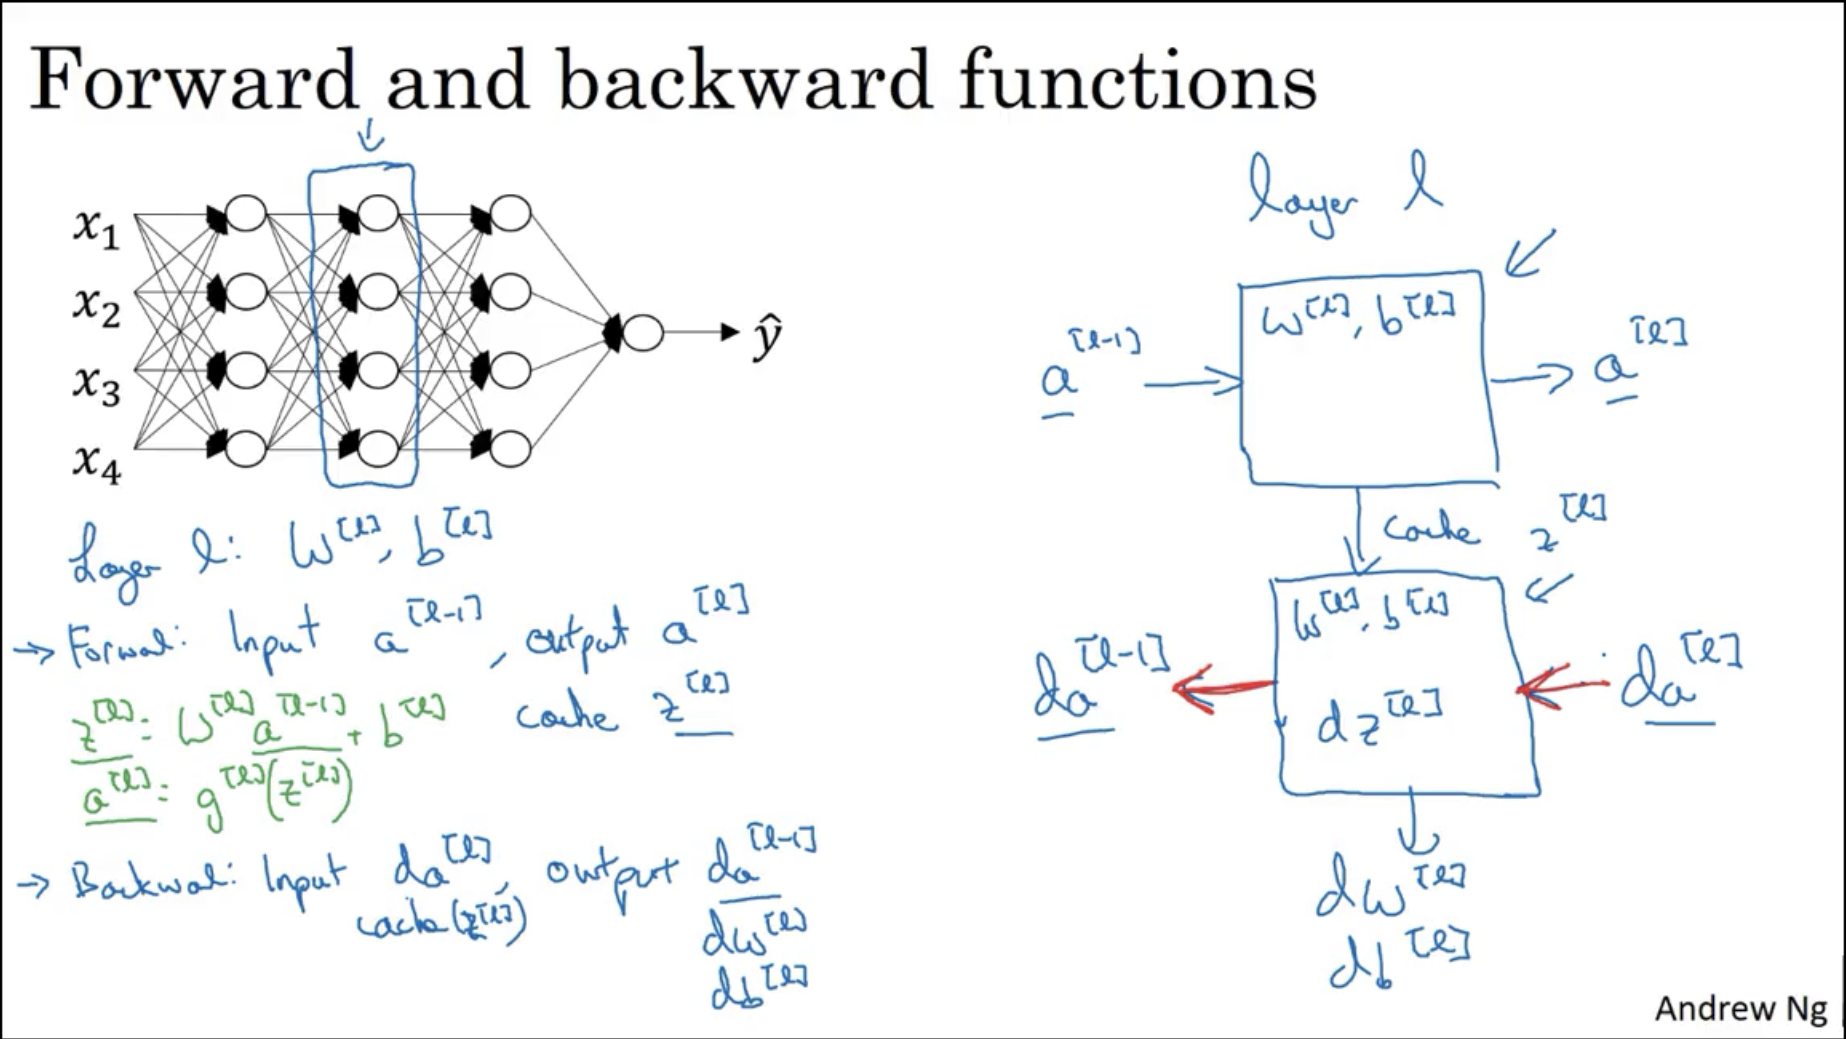 Forward and backward functions
x₁
x₂
x₃
x₄
ŷ
Layer l: W^[l], b^[l]
→ Forward: Input a^[l-1], output a^[l]
cache z^[l]
z^[l] = W^[l] a^[l-1] + b^[l]
a^[l] = g^[l](z^[l])
→ Backward: Input da^[l], output da^[l-1]
cache (z^[l])
dW^[l]
db^[l]
layer l
W^[l], b^[l]
a^[l-1] → → a^[l]
cache z^[l]
W^[l], b^[l]
da^[l-1] ← ← da^[l]
dz^[l]
dW^[l]
db^[l]
Andrew Ng